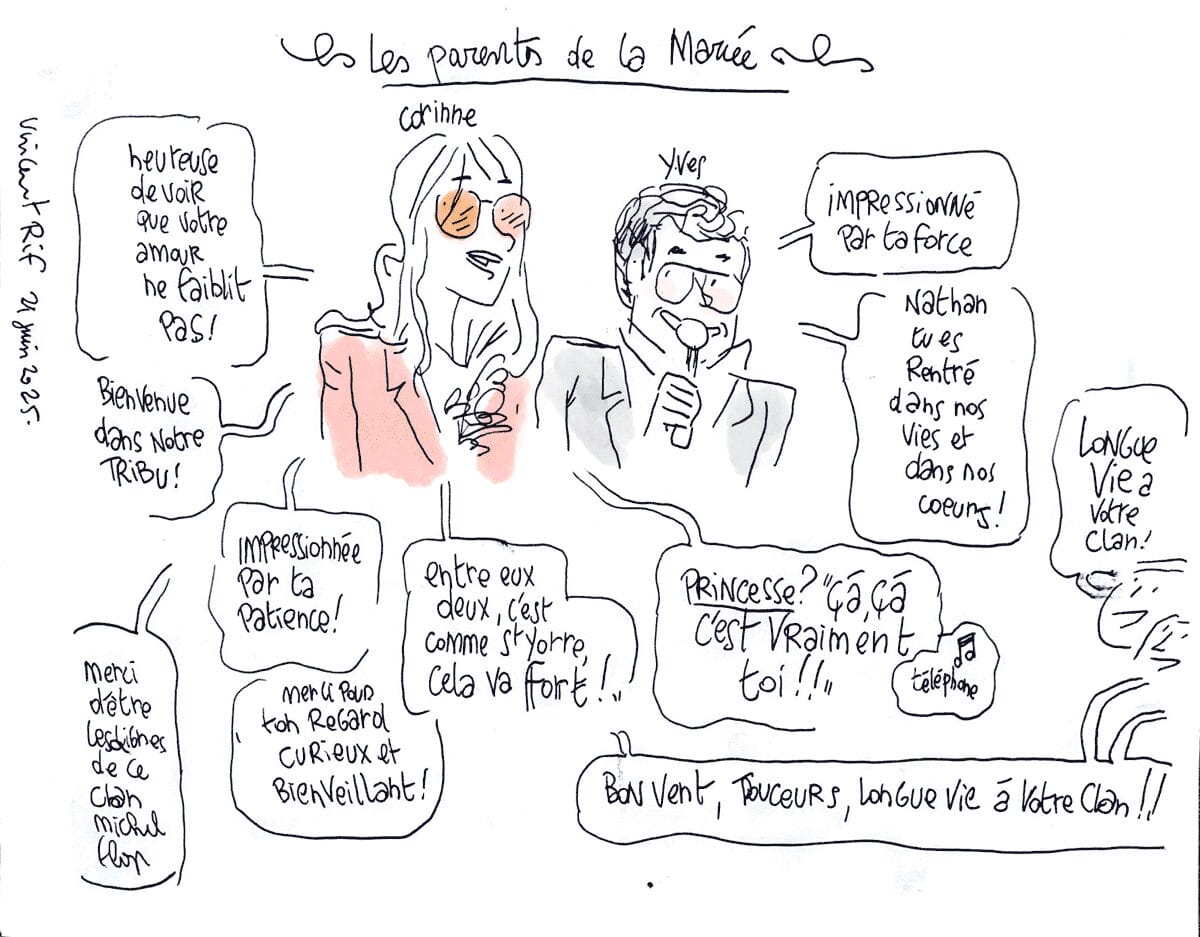 Les parents de la Mariée
Corinne
Yves
Vincent Rif 21 juin 2025.
heureuse
de voir
que votre
amour
ne faiblit
PAS!
Bienvenue
dans Notre
TRiBU!
IMPRessionnée
Par ta
Patience!
merci
d'être
de ce
Clan
michel
merci pour
ton Regard
CURieux et
BienVeillant!
entre eux
deux, c'est
comme St Yorre,
Cela va fort!"
iMPRESSIONNÉ
Par ta force
Nathan
tu es
Rentré
dans nos
vies et
dans nos
coeurs!
PRiNCESSE? "ÇÁ, ÇÁ
C'EST VRAIMENT
toi!!"
téléphone
LONGUE
Vie à
Votre
Clan!
BON Vent, DOUCEURS, LONGUE Vie á Votre Clan!!